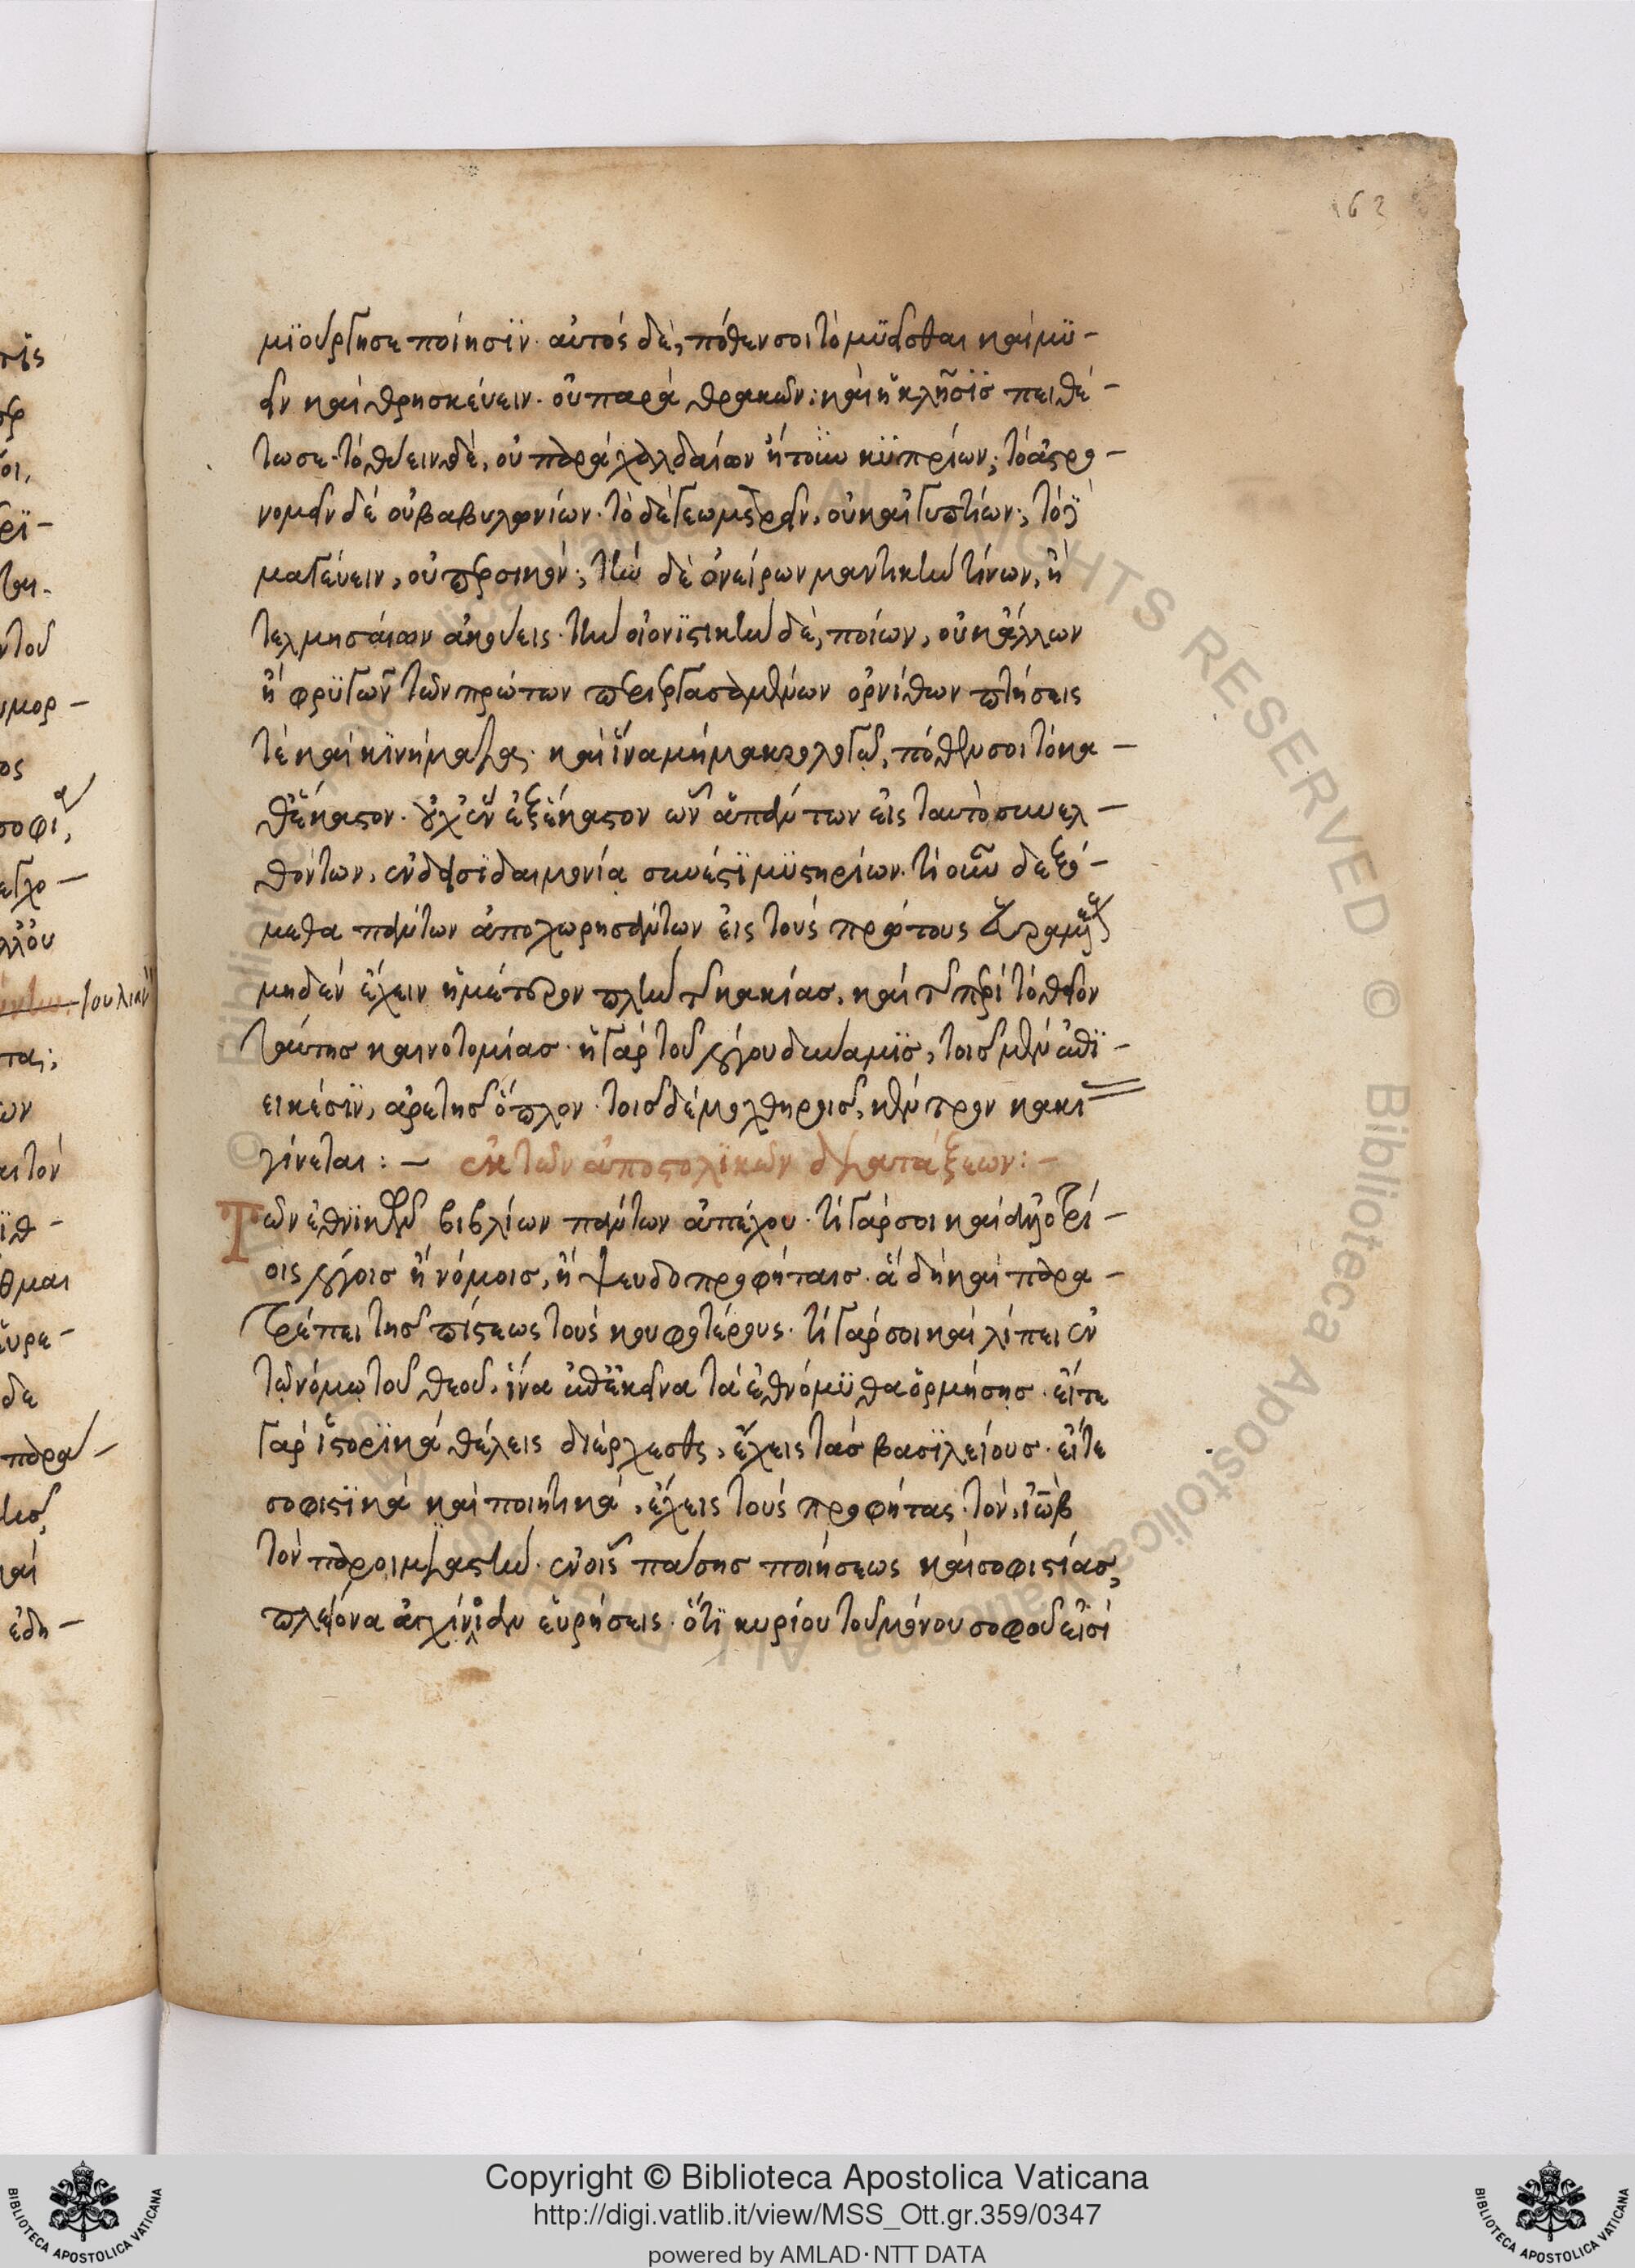 162
μϊούργησε ποίησϊν· αὐτὸς δὲ, πόθεν σοι τὸ μϋεῖσθαι καὶ μϋ-
εῖν καὶ θρησκεύειν· οὐ παρὰ θρακῶν; καὶ ἡ κλῆσϊς πειθέ-
τω σε· τὸ θύειν δὲ, οὐ παρὰ χαλδαίων ἤτουν κϋπρίων; τὸ ἀστρο-
νομεῖν δὲ οὐ βαβυλωνίων· τὸ δὲ γεωμετρεῖν, οὐκ αἰγυπτίων;
ματεύειν, οὐ περσικόν; τὴν δὲ ὀνείρων μαντικὴν τίνων, ἢ
τελμησαίων ἀκούεις· τὴν οἰονϊστικὴν δὲ, ποίων, οὐκ ἄλλων
ἢ φρϋγῶν τῶν πρώτων περιεργασαμένων ὀρνίθων πτήσεις
τὲ καὶ κϊνήματα· καὶ ἵνα μὴ μακρολογῶ, πόθεν σοι τὸ κα-
θἕκαστον· οὐχ ἓν ἐξ ἑκάστον ὧν ἁπάντων εἰς ταυτὸ συνελ-
θόντων, ἓν δεισϊδαιμονία συνέστϊ μϋστηρίων· τί οὖν δεξό-
μεθα πάντων ἀποχωρησάντων εἰς τοὺς πρώτους
μηδὲν ἔχειν ἡμέτερον πλὴν τῆς κακίας, καὶ τῆς περὶ τὸ θεῖον
ταύτης καινοτομίας· ἡ γὰρ τοῦ λόγου δυναμϊς, τοις μὲν ἐπϊ-
εικέσϊν, ἀρετῆς ὅπλον· τοῖς δὲ μοχθηροῖς, κέντρον κακι
γίνεται: — ἐκ τῶν ἀποστολϊκῶν διατάξεων: -
Τῶν ἐθνϊκῶν βιβλίων πάντων ἀπέχου· τί γάρ σοι καὶ ἀλλοτρί-
οις λόγοις ἢ νόμοις, ἢ ψευδοπροφήταις· ἃ δὴ καὶ παρα-
τρέπει τῆς πίστεως τοὺς κουφοτέρους· τί γάρ σοι καὶ λίπει ἐν
τῷ νόμῳ τοῦ θεοῦ, ἵνα ἐπ' ἐκεῖνα τὰ ἐθνόμϋθα ὁρμήσῃς· εἴτε
γὰρ ἱστορϊκὰ θέλεις διέρχεσθαι, ἔχεις τὰς βασϊλείους· εἴτε
σοφιστϊκὰ καὶ ποιητικὰ, ἔχεις τοὺς προφήτας· τὸν ἰὼβ
τὸν παροιμιαστὴν· ἐν οἷς πάσης ποιήσεως καὶ σοφιστίας,
πλείονα ἀγχίνοιαν εὑρήσεις· ὅτϊ κυρίου τοῦ μόνου σοφοῦ εἰσὶ
Copyright © Biblioteca Apostolica Vaticana
http://digi.vatlib.it/view/MSS_Ott.gr.359/0347
powered by AMLAD·NTT DATA